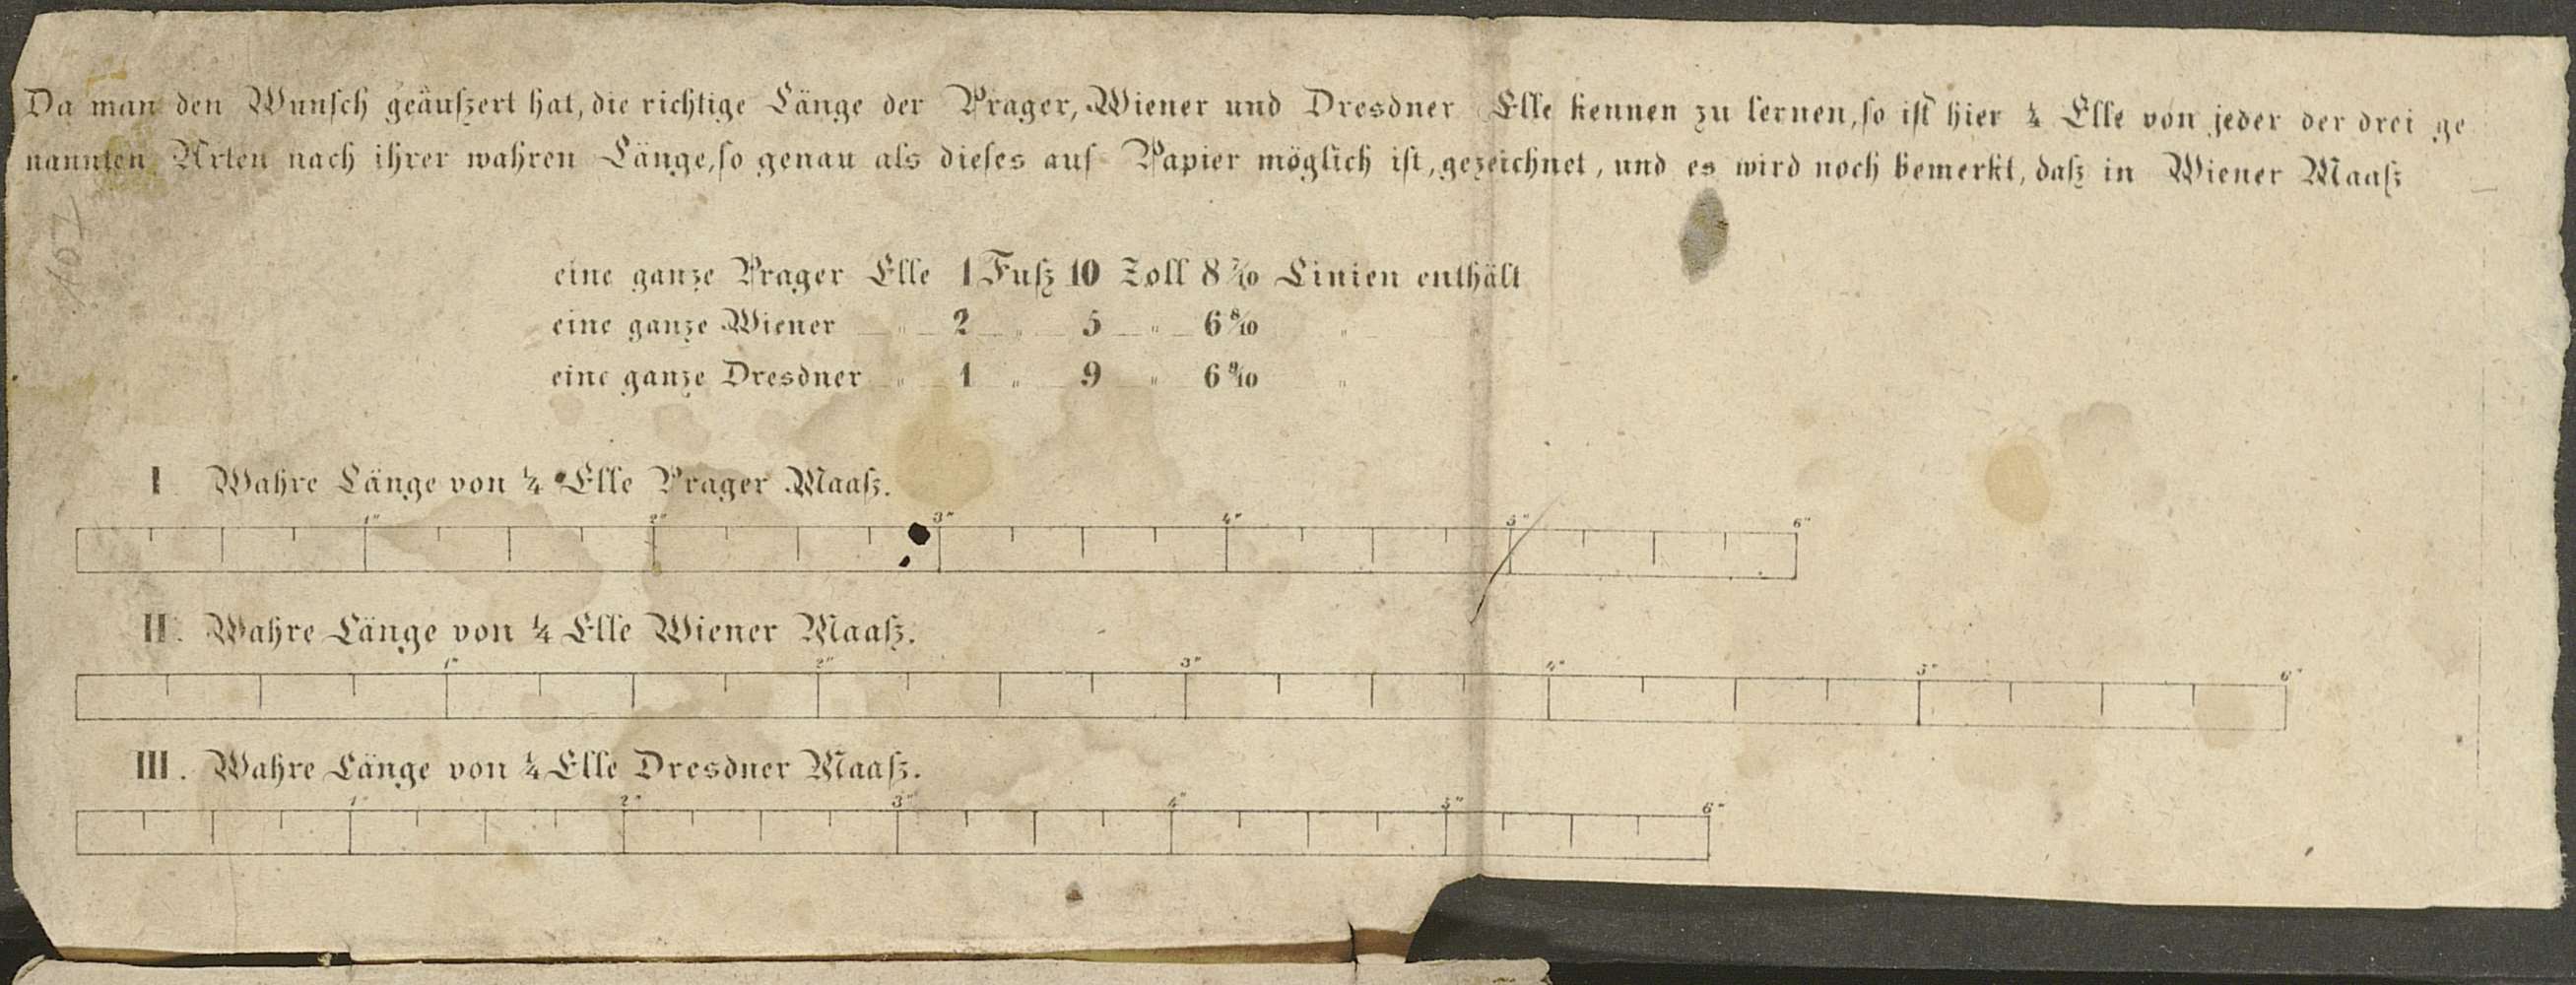 Da man den Wunsch geäußert hat, die richtige Länge der Prager, Wiener und Dresdner Elle kennen zu lernen, so ist hier ¼ Elle von jeder der drei ge
nannten Arten nach ihrer wahren Länge, so genau als dieses auf Papier möglich ist, gezeichnet, und es wird noch bemerkt, daß in Wiener Maaß
eine ganze Prager Elle 1 Fuß 10 Zoll 8 7/10 Linien enthält
eine ganze Wiener — " — 2 — " — 5 — " — 6 8/10 "
eine ganze Dresdner " — 1 " — 9 — " — 6 9/10 "
I Wahre Länge von ¼ Elle Prager Maaß.
1" 2" 3" 4" 5" 6"
II. Wahre Länge von ¼ Elle Wiener Maaß.
1" 2" 3" 4" 5" 6"
III. Wahre Länge von ¼ Elle Dresdner Maaß.
1" 2" 3" 4" 5" 6"